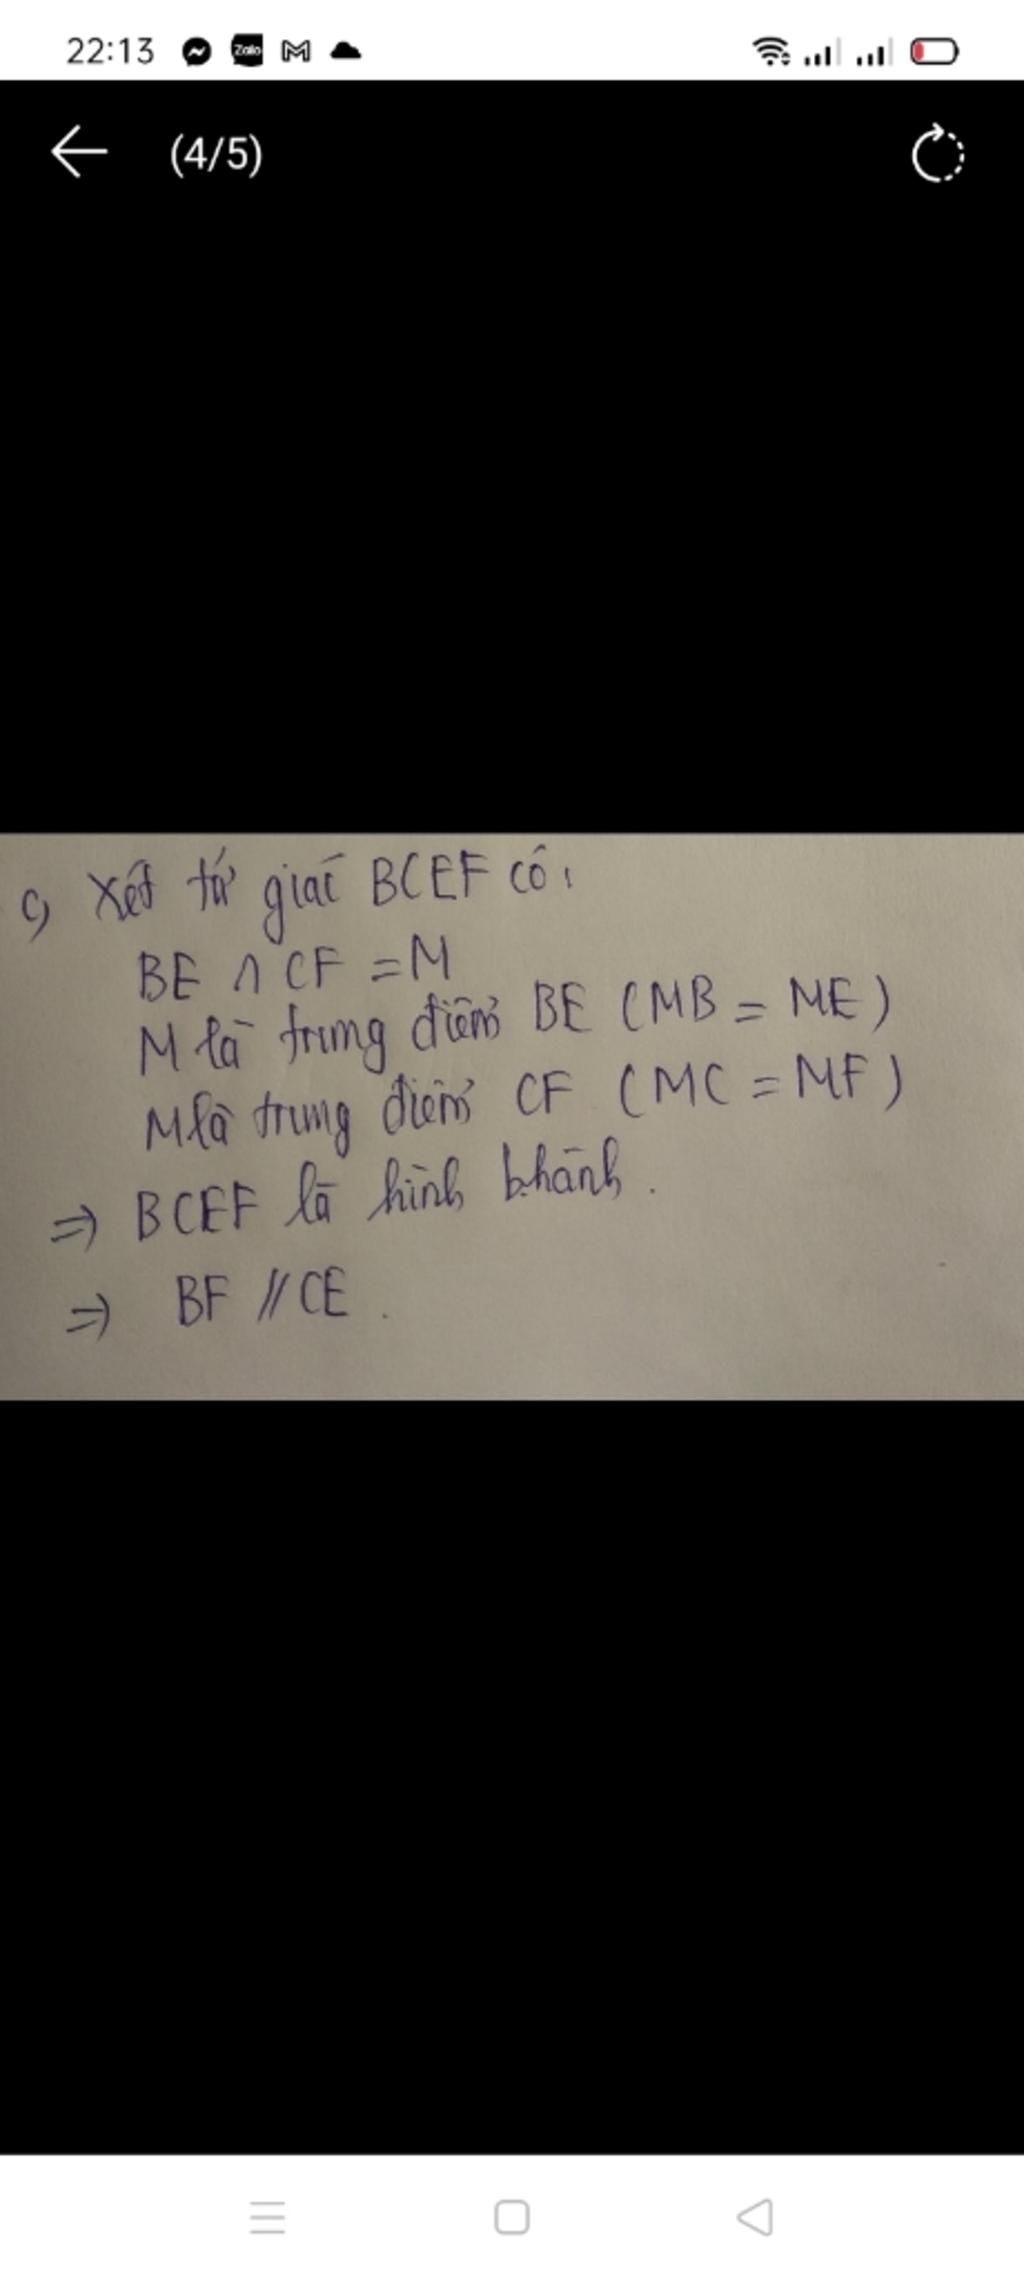 22:13 Zalo
(4/5)
c, Xét tứ giác BCEF có:
BE ∩ CF = M
M là trung điểm BE (MB = ME)
M là trung điểm CF (MC = MF)
=> BCEF là hình b.hành.
=> BF // CE.